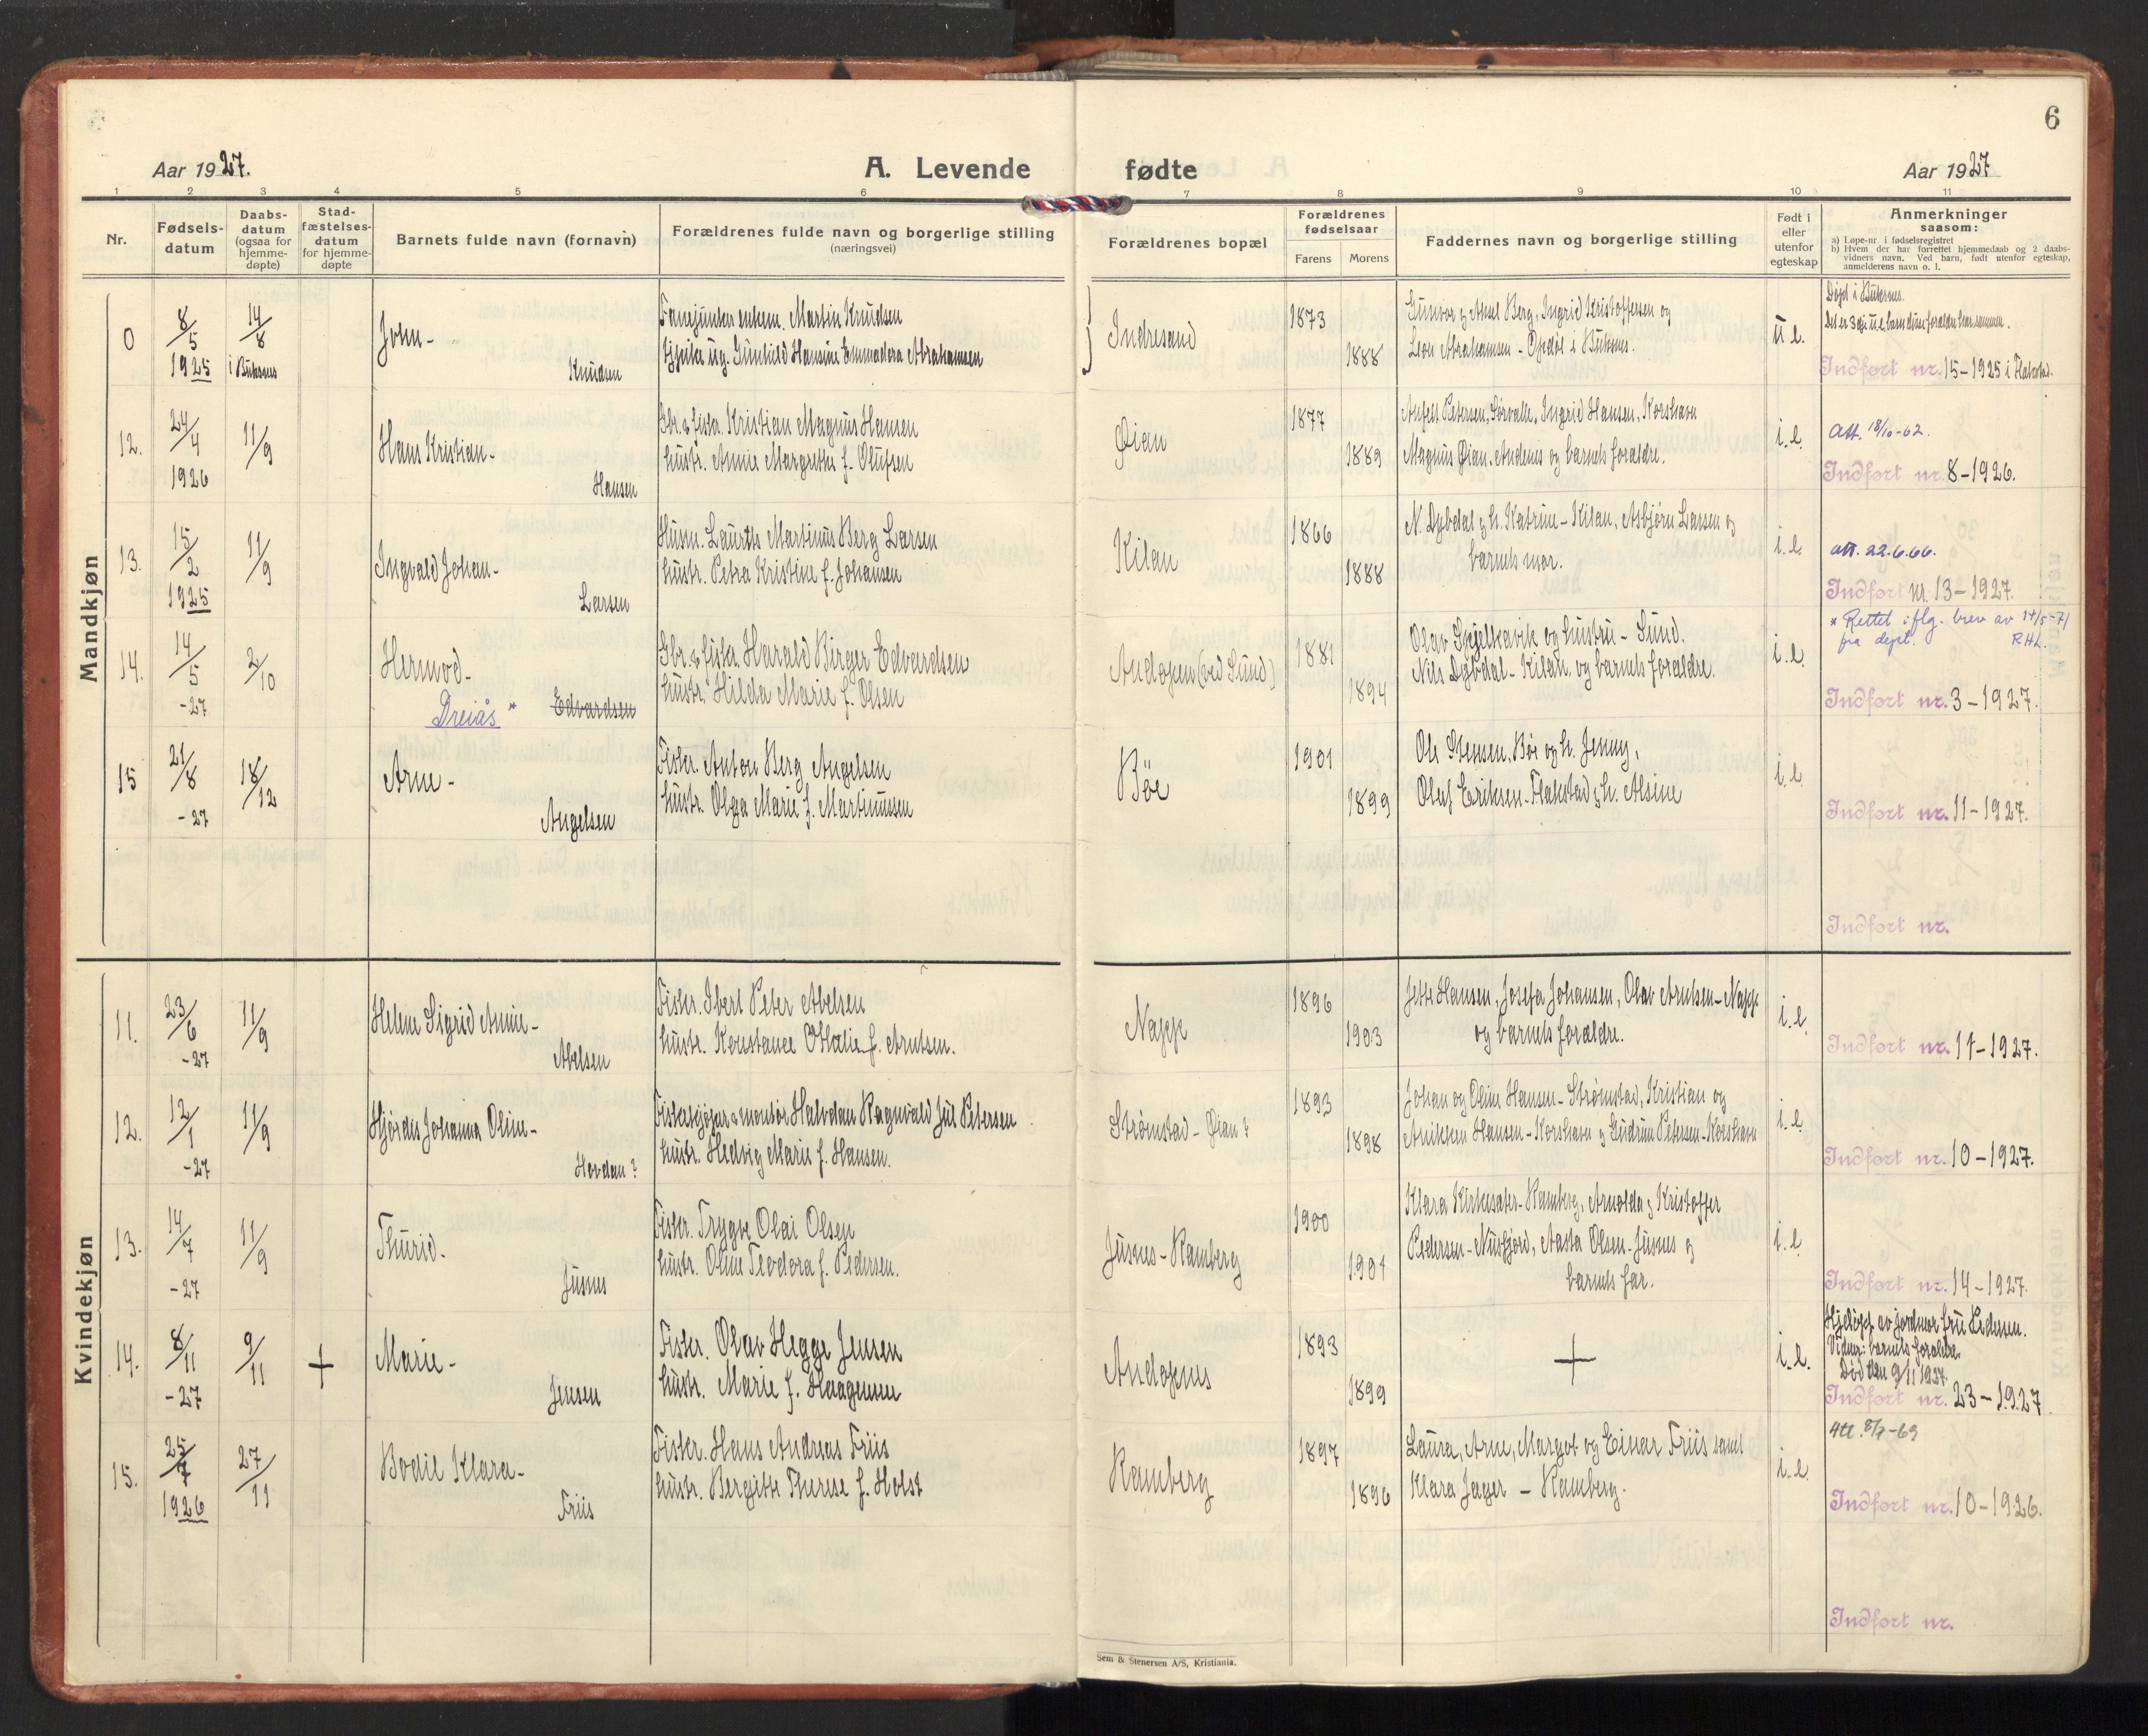 6
Aar 1927.
A. Levende
fødte
Aar 1927
1 2 3 4 5 6 7 8 9 10 11
Nr.
Fødsels-
datum
Daabs-
datum
(ogsaa for
hjemme-
døpte)
Stad-
fæstelses-
datum
for hjemme-
døpte
Barnets fulde navn (fornavn)
Forældrenes fulde navn og borgerlige stilling
(næringsvei)
Forældrenes bopæl
Forældrenes
fødselsaar
Farens
Morens
Faddernes navn og borgerlige stilling
Født i
eller
utenfor
egteskap
Anmerkninger
saasom:
a) Løpe-nr. i fødselsregistret
b) Hvem der har forrettet hjemmedaab og 2 daabs-
vidners navn. Ved barn, født utenfor egteskap,
anmelderens navn o. l.
Mandkjøn
0
8/5
1925
14/8
i Buksnes
John-
Knudsen
Fanejunker enkem. Martin Knudsen
ug. Gunhild Hansine Emmadora Abrahamsen
Indresand
1873
1888
Gunvor og Aksel Berg, Ingrid Kristoffersen og
Leon Abrahamsen - i Buksnes.
u e.
Døpt i Buksnes.
Indført nr. 15-1925 i Flakstad.
12.
24/4
1926
11/9
Hans Kristian-
Hansen
Gbr. & fisker. Kristian Magnus Hansen
hustr. Annie Margrethe f. Olufsen
Øian
1877
1889
Petersen, Sørvalle, Ingrid Hansen, Korshavn
Magnus Øian, Andenes og barnets forældre.
i. e
Att. 18/10-62.
Indført nr. 8-1926.
13.
15/2
1925
11/9
Ingvald Johan-
Larsen
Husm. Laurits Martinus Berg Larsen
hustr. Petra Kristine f. Johansen
Kilan
1866
1888
N. Dybdal og h. Katrine - Kilan, Asbjørn Larsen og
barnets mor.
i. e.
att. 22.6.66.
Indført nr. 13-1927.
14.
14/5
-27
2/10
Hermod-
Edvardsen
Dreiås *
Gbr. & fiskr. Harald Birger Edvardsen
hustr. Hilda Marie f. Olsen
Andopen (ved Sund)
1881
1894
Olav Skjelkavik og hustru - Sund.
Nils Dybdal - Kilan. og barnets forældre.
i. e.
* Rettet iflg. brev av 14/5-71
fra dept. RHL
Indført nr. 3-1927.
15
21/8
-27
18/12
Arne-
Angelsen
Fisker. Anton Berg Angelsen
hustr. Olga Marie f. Martinussen
Bøe
1901
1899
Ole Stensen, Bøe og h. Jenny,
Olaf Eriksen - Flakstad og h. Alsine
i. e.
Indført nr. 11-1927.
Indført nr.
Kvindekjøn
11.
23/6
-27
11/9
Helene Sigrid Annie-
Abelsen
Fisker. Ibert Peter Abelsen
hustr. Konstance Othalie f. Arntsen.
Napp
1896
1903
Jette Hansen, Josefa Johansen, Olav Arntsen - Napp
og barnets forældre.
i. e.
Indført nr. 17-1927.
12.
12/1
-27
11/9
Hjørdis Johanna Oline-
Hovdan?
Fiskekjøper & montør Halvdan Ragnvald Jul Petersen
hustr. Hedvig Marie f. Hansen.
Strømstad - Øian?
1893
1898
Johan og Oline Hansen - Strømstad, Kristian og
Anikken Hansen - Korshavn og Gudrun Petersen - Korshavn
i. e.
Indført nr. 10-1927.
13.
14/7
-27
11/9
Thurid.
Jusnes
Fisker. Trygve Olai Olsen
hustr. Oline Teodora f. Pedersen.
Jusnes - Ramberg
1900
1901
Klara Kirkesæter - Ramberg, Arnolda og Kristoffer
Pedersen - Nusfjord, Aasta Olsen - Jusnes og
barnets far.
i. e.
Indført nr. 14-1927.
14.
8/11
-27
9/11
+
Marie-
Jensen
Fisker. Olav Hegge Jensen
hustr. Marie f. Haagensen
Andopnes
1893
1899
+
i. e.
Hjdøpt av jordmor fru Pedersen.
Vidner: barnets forældre.
Død den 9/11 1927.
Indført nr. 23-1927.
15.
25/7
1926
27/11
Bodil Klara-
Friis
Fisker. Hans Andreas Friis
hustr. Bergitte Therese f. Holst
Ramberg
1897
1896
Laura, Arne, Margot og Einar Friis samt
Klara Jager - Ramberg.
i. e.
Att. 8/7-69
Indført nr. 10-1926.
Indført nr.
Sem & Stenersen A/S, Kristiania.